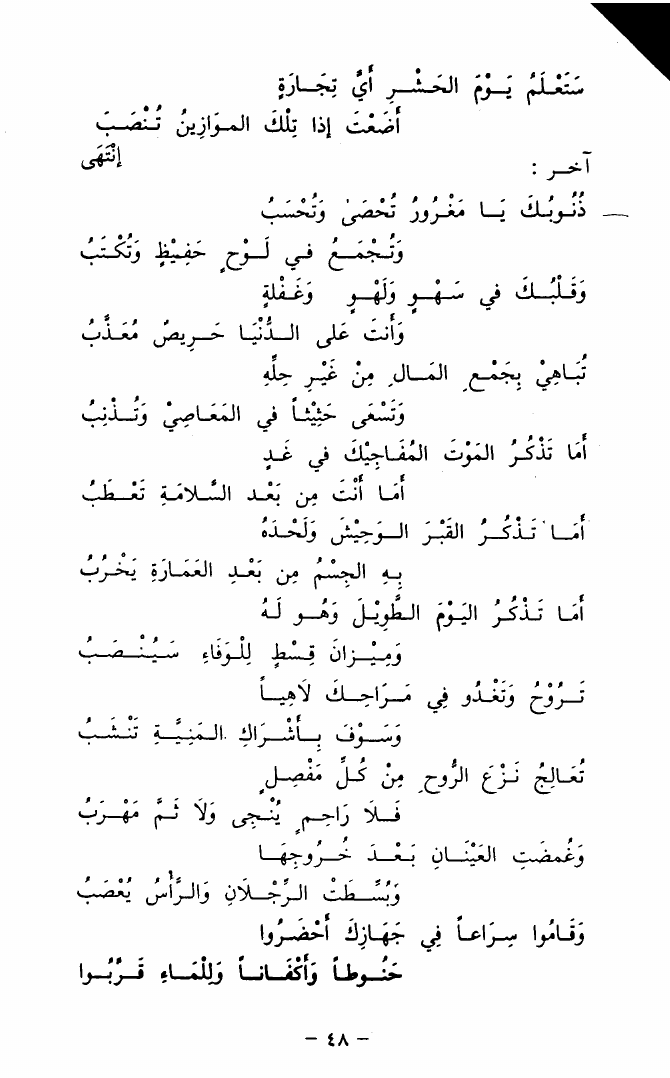 سَتَعْلَمُ يَوْمَ الحَشْرِ أَيَّ تِجَارَةٍ
أَضَعْتَ إذا تِلْكَ الموَازِينُ تُنْصَبَ
إنْتَهَى
آخر :
ذُنُوبُكَ يَا مَغْرُورُ تُحْصَى وَتُحْسَبُ
وَتُجْمَعُ في لَوْحٍ حَفِيظٍ وَتُكْتَبُ
وَقَلْبُكَ في سَهْوٍ وَلَهْوٍ وَغَفْلةٍ
وَأنتَ عَلى الدُّنْيَا حَرِيصٌ مُعَذَّبُ
تُبَاهِيْ بِجَمْعِ المَالِ مِنْ غَيْرِ حِلِّهِ
وَتَسْعَى حَثِيْثاً في المَعَاصِيْ وَتُذْنِبُ
أمَا تَذْكُرُ المَوْتَ المُفَاجِيْكَ في غَدٍ
أمَا أنْتَ مِن بَعْد السَّلامَةِ تَعْطَبُ
أمَا تَذْكُرُ القَبْرَ الوَحِيْشَ وَلَحْدَهُ
بِهِ الجِسْمُ مِن بَعْدِ العَمَارَةِ يَخْرُبُ
أمَا تَذْكُرُ اليَوْمَ الطَّوِيْلَ وَهُو لَهُ
وَمِيْزانَ قِسْطٍ لِلْوَفَاءِ سَيُنْصَبُ
تَرُوْحُ وَتَغْدُو في مَرَاحِكَ لاَهِياً
وَسَوْفَ بِأَشْرَاكِ المَنِيَّةِ تَنْشَبُ
تُعَالِجُ نَزْعَ الرُّوحِ مِنْ كُلِّ مَفْصِلٍ
فَلاَ رَاحِمٍ يُنْجِى وَلاَ ثَمَّ مَهْرَبُ
وَغُمضَتِ العَيْنَانِ بَعْدَ خُرُوجِهَا
وَبُسِّطَتْ الرِّجْلاَنِ وَالرَّأْسُ يُعْصَبُ
وَقَامُوا سِرَاعاً في جَهَازِكَ أَحْضَرُوا
حَنُوطاً وَأكْفَاناً وَلِلْمَاءِ قَرَّبُوا
- ٤٨ -